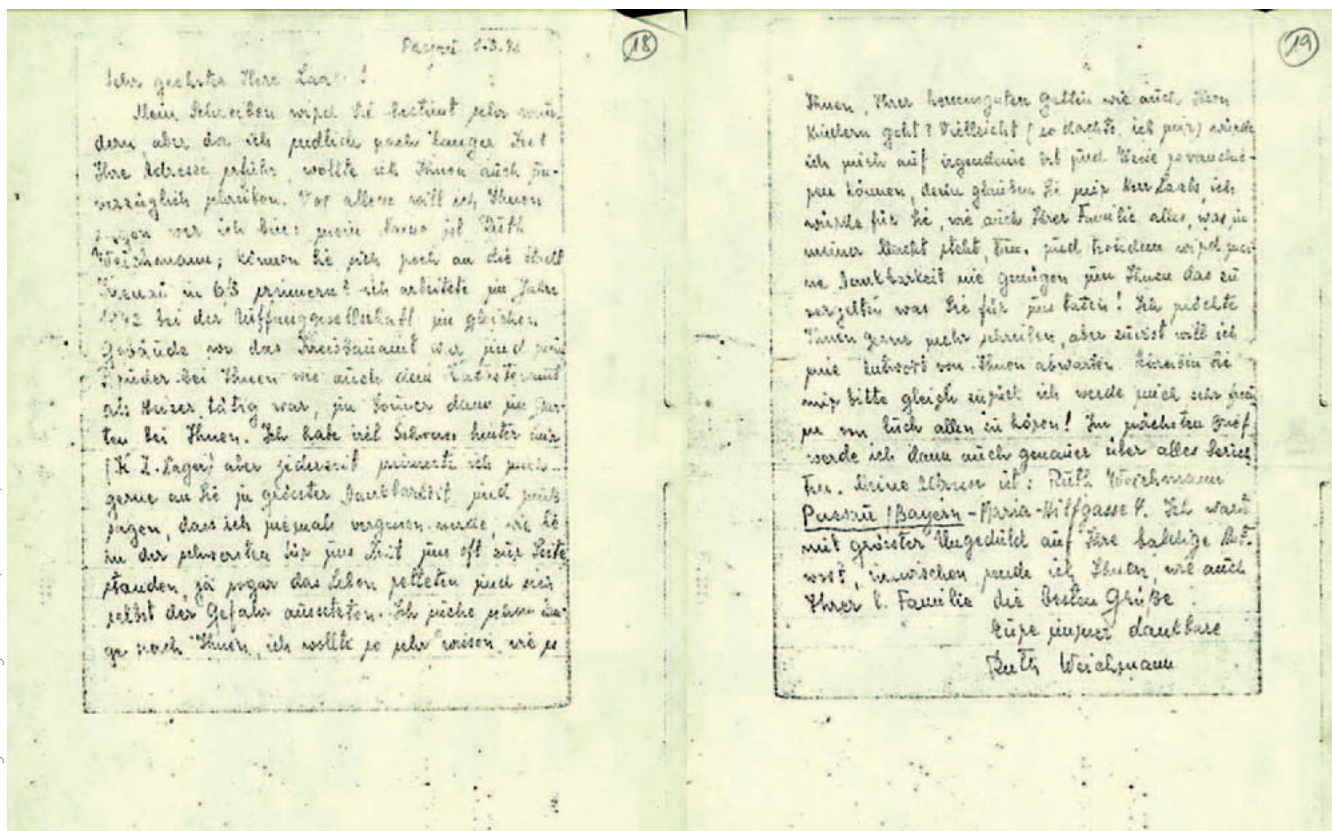 Passau 1.3.
18
Sehr geehrter Herr Laabs!
Mein Schreiben wird Sie bestimt sehr wun-
dern, aber da ich endlich nach langer Zeit
Ihre Adresse erfuhr, wollte ich Ihnen auch un-
verzüglich schreiben. Vor allem will ich Ihnen
sagen wer ich bin: mein Name ist Ruth
Weichmann; können Sie sich noch an die Stadt
Krenau in O/S erinnern? ich arbeitete im Jahre
1942 bei der im gleichen
Gebäude wo das Kreisbauamt war und mein
Bruder bei Ihnen wie auch dem Katasteramt
als Heizer tätig war, im Sommer dann im Gar-
ten bei Ihnen. Ich habe viel Schweres hinter mir
(K.Z.-Lager) aber jederzeit erinnerte ich mich
gerne an Sie in grösster Dankbarkeit und muß
sagen, dass ich niemals vergessen werde, wie Sie
in der schwersten für uns Zeit uns oft zur Seite
standen, ja sogar das Leben retteten und sich
selbst der Gefahr aussetzten. Ich suche schon lan-
ge nach Ihnen, ich wollte so sehr wissen, wie es
19
Ihnen, Ihrer herzensguten Gattin wie auch Ihren
Kindern geht? Vielleicht (so dachte ich mir) würde
ich mich auf irgendeine Art und Weise revanchie-
ren können, denn glauben Sie mir Herr Laabs, ich
würde für Sie, wie auch Ihrer Familie alles, was in
meiner Macht steht, tun. und trotzdem wird mei-
ne Dankbarkeit nie genügen um Ihnen das zu
vergelten was Sie für uns taten! Ich möchte
Ihnen gerne mehr schreiben, aber zuerst will ich
eine Antwort von Ihnen abwarten. Schreiben Sie
mir bitte gleich zurück ich werde mich sehr freu
en von Euch allen zu hören! Im nächsten Brief
werde ich dann auch genauer über alles berich
ten. Meine Adresse ist: Ruth Weichmann
Passau/Bayern - Maria-Hilfgasse. Ich warte
mit grösster Ungeduld auf Ihre baldige Ant-
wort, inzwischen sende ich Ihnen, wie auch
Ihrer l. Familie die besten Grüße
Eure immer dankbare
Ruth Weichmann